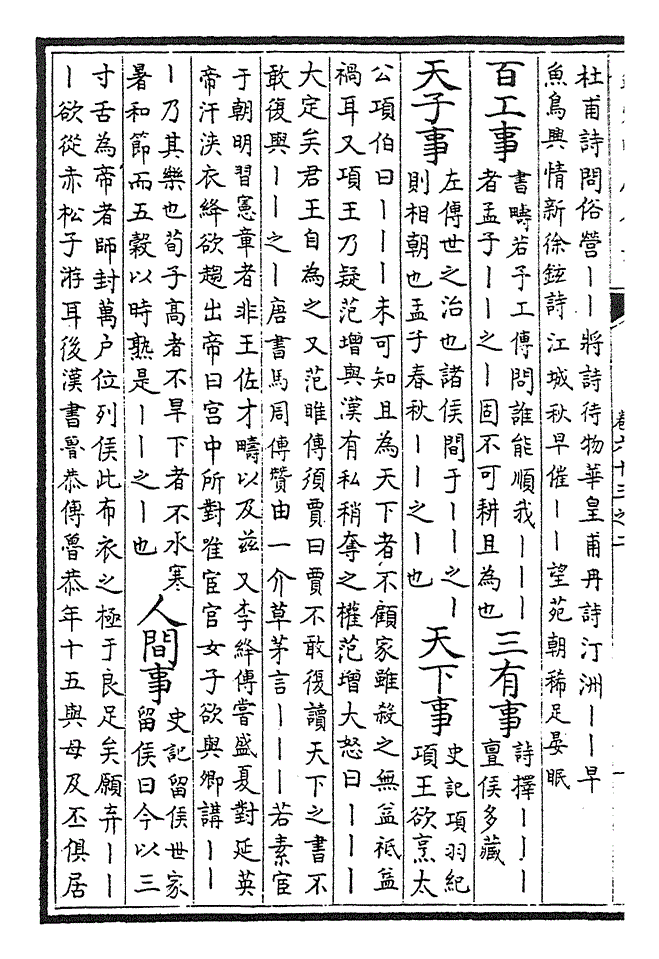 杜甫詩問俗營丨丨將詩待物華皇甫冉詩汀洲丨丨早
魚鳥興情新徐鉉詩江城秋早催丨丨望苑朝稀足晏眠
百工事
書疇若予工傳問誰能順我丨丨丨
者孟子丨丨之丨固不可耕且為也
三有事
詩擇丨丨丨
亶侯多藏
天子事
左傳世之治也諸侯間于丨丨之丨
則相朝也孟子春秋丨丨之丨也
天下事
史記項羽紀
項王欲烹太
公項伯曰丨丨丨未可知且為天下者不顧家雖殺之無益祗益
禍耳又項王乃疑范增與漢有私稍奪之權范增大怒曰丨丨丨
大定矣君王自為之又范睢傳須賈曰賈不敢復讀天下之書不
敢復與丨丨之丨唐書馬周傳贊由一介草茅言丨丨丨若素宦
于朝明習憲章者非王佐才疇以及茲又李絳傳嘗盛夏對延英
帝汗浹衣絳欲趨出帝曰宮中所對唯宦官女子欲與卿講丨丨
丨乃其樂也荀子高者不旱下者不水寒
暑和節而五穀以時熟是丨丨之丨也
人間事
史記留侯世家
留侯曰今以三
寸舌為帝者師封萬户位列侯此布衣之極于良足矣願弃丨丨
丨欲從赤松子游耳後漢書魯恭傳魯恭年十五與母及丕俱居